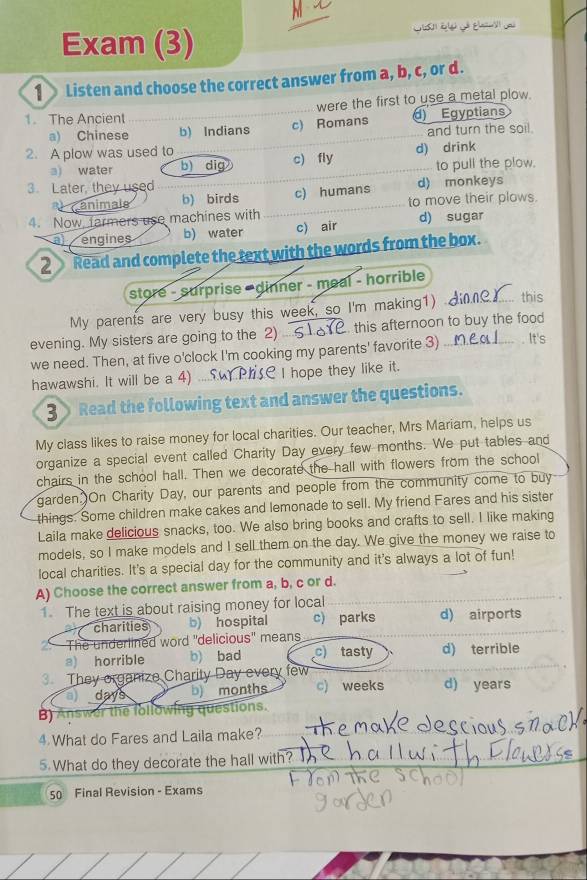 نص الاستماع في نهاية الكتاب
Exam (3)
1 Listen and choose the correct answer from a, b, c, or d.
1. The Ancient ........ were the first to use a metal plow.
a) Chinese b) Indians c) Romans d) Egyptians
2. A plow was used to ........ and turn the soil.
a) water b) dig c) fly d) drink
3. Later, they used ........ to pull the plow.
a) animals b) birds c) humans d) monkeys
4. Now, farmers use machines with ........ to move their plows.
a) engines b) water c) air d) sugar
2 Read and complete the text with the words from the box.
store - surprise - dinner - meal - horrible
My parents are very busy this week, so I'm making1) dinner this
evening. My sisters are going to the 2) slore this afternoon to buy the food
we need. Then, at five o'clock I'm cooking my parents' favorite 3) meal . It's
hawawshi. It will be a 4) surprise I hope they like it.
3 Read the following text and answer the questions.
My class likes to raise money for local charities. Our teacher, Mrs Mariam, helps us
organize a special event called Charity Day every few months. We put tables and
chairs in the school hall. Then we decorate the hall with flowers from the school
garden. On Charity Day, our parents and people from the community come to buy
things. Some children make cakes and lemonade to sell. My friend Fares and his sister
Laila make delicious snacks, too. We also bring books and crafts to sell. I like making
models, so I make models and I sell them on the day. We give the money we raise to
local charities. It's a special day for the community and it's always a lot of fun!
A) Choose the correct answer from a, b, c or d.
1. The text is about raising money for local ........ .
a) charities b) hospital c) parks d) airports
2. The underlined word "delicious" means ........ .
a) horrible b) bad c) tasty d) terrible
3. They organize Charity Day every few ........ .
a) days b) months c) weeks d) years
B) Answer the following questions.
4. What do Fares and Laila make? The make descious snack
5. What do they decorate the hall with? The hall with Flowerse
From the school
garden
50 Final Revision - Exams